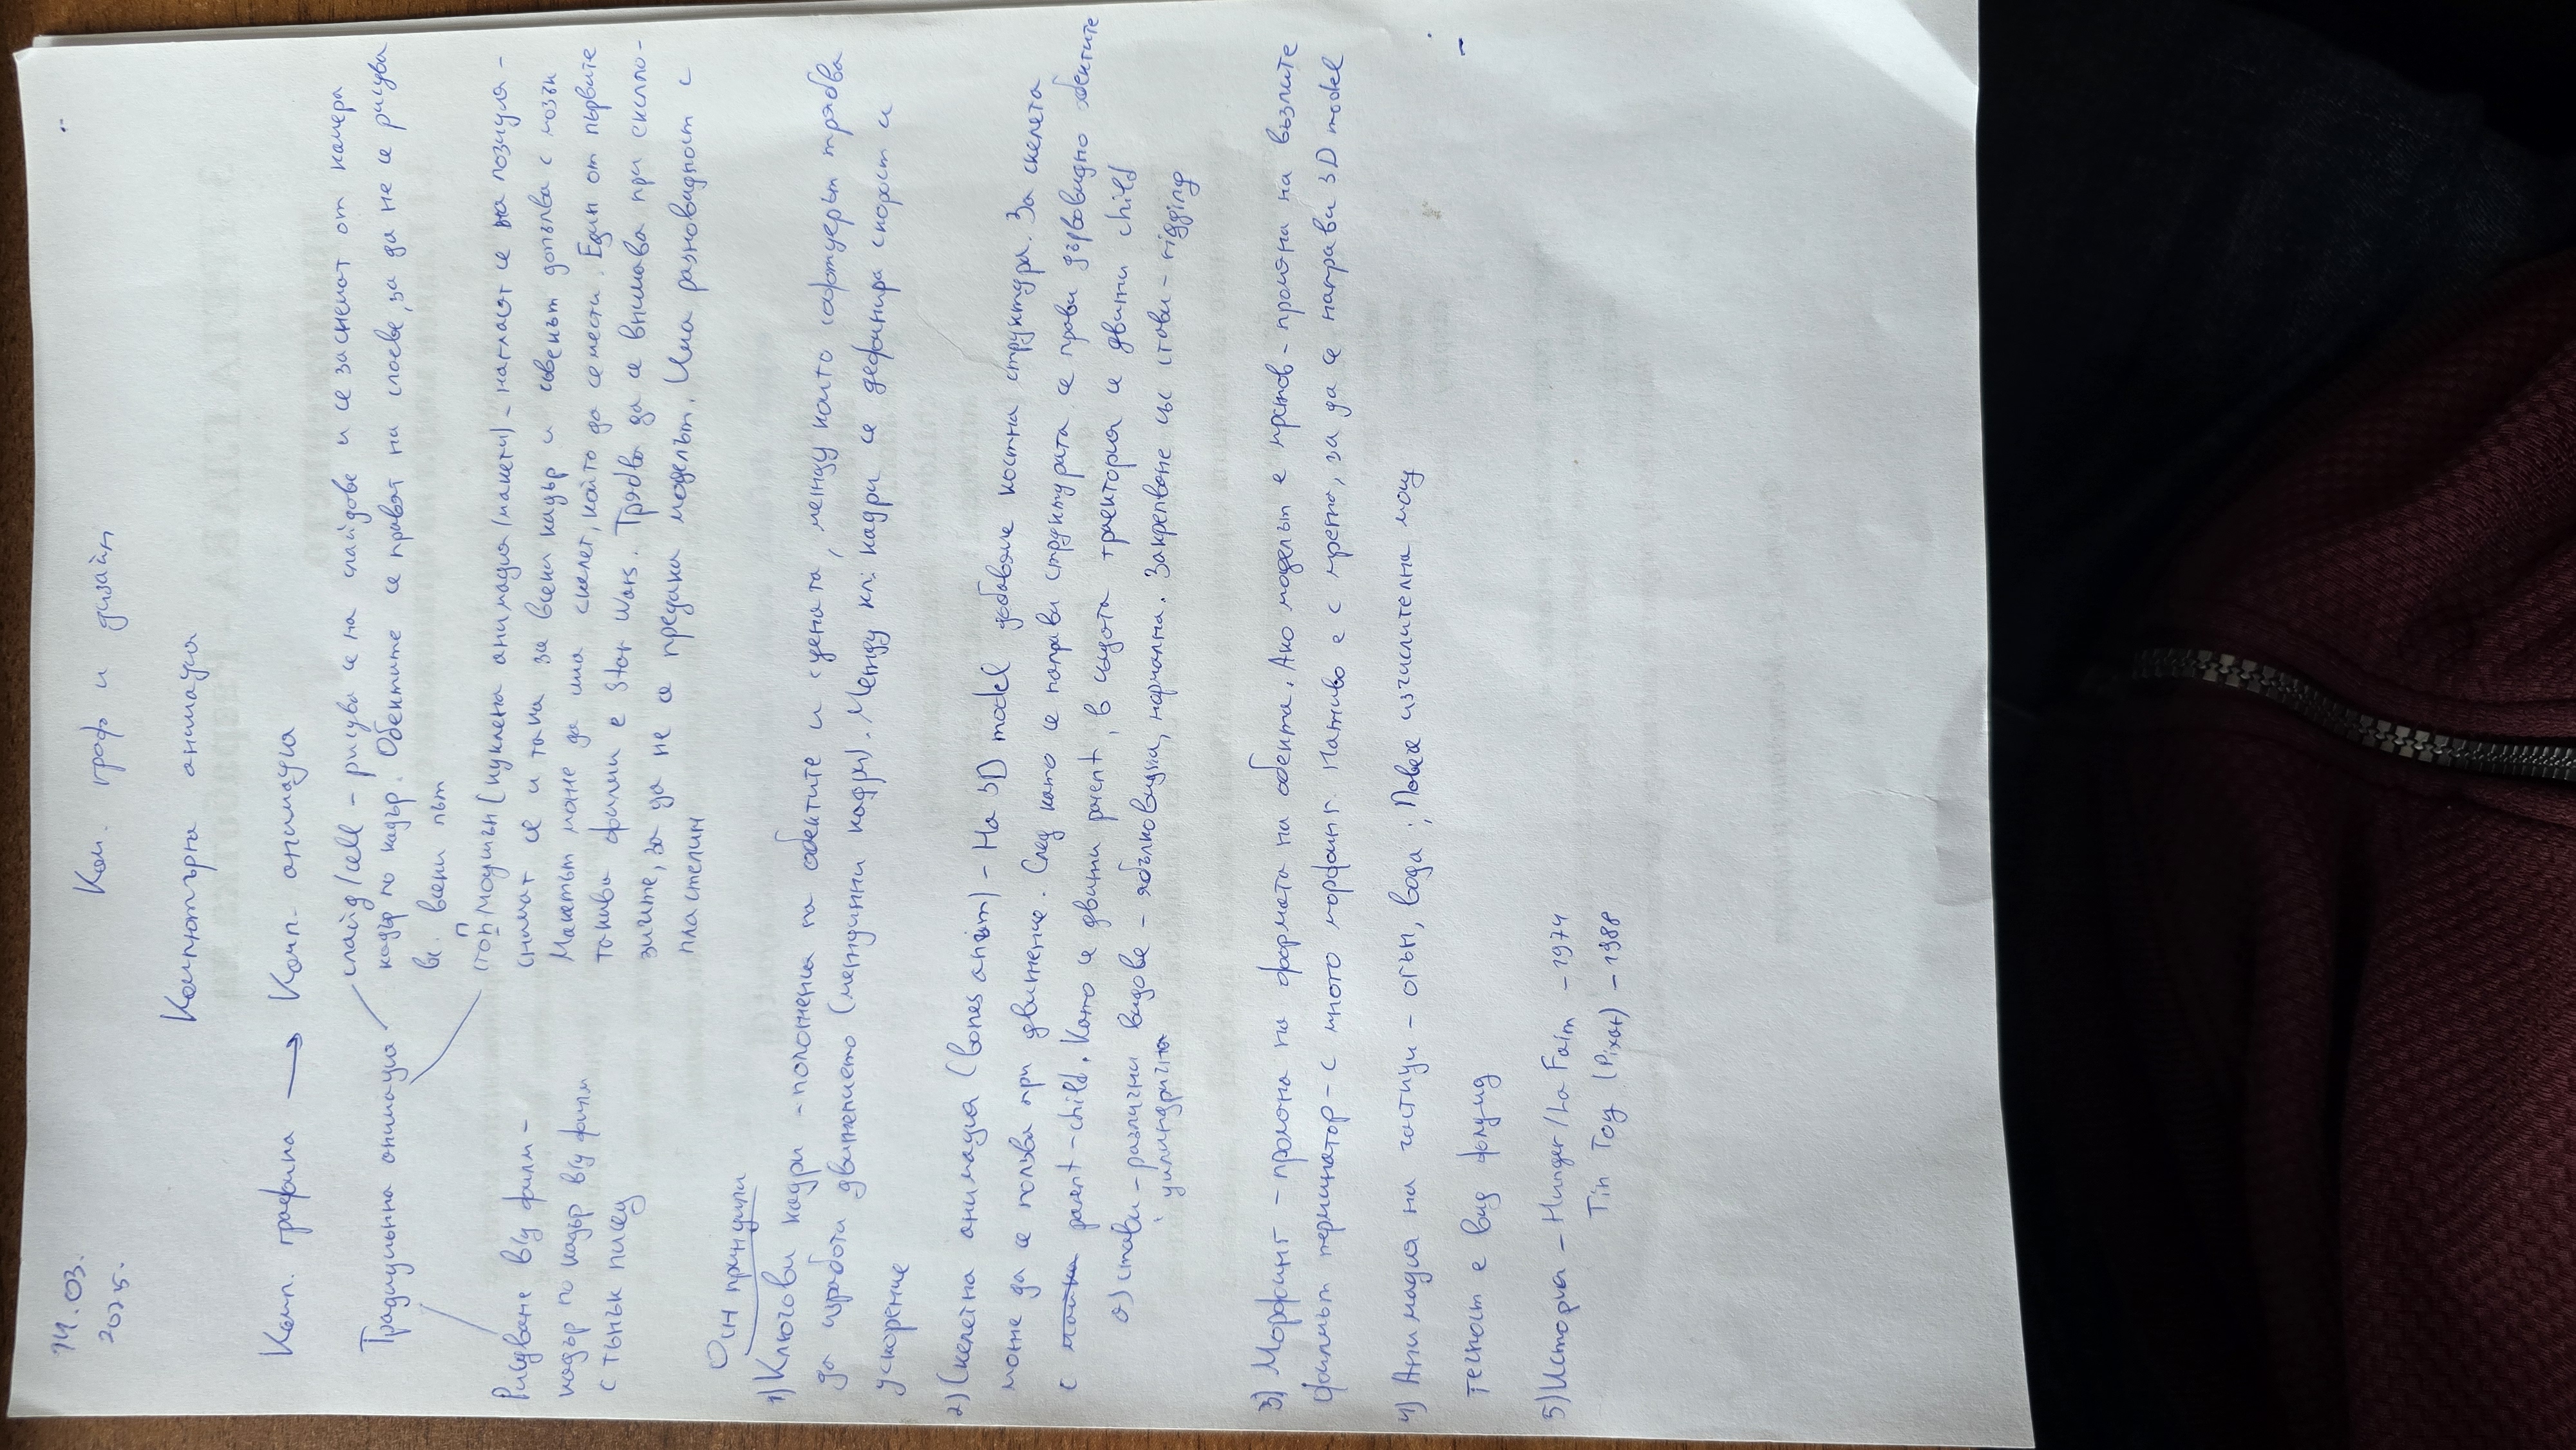 14.03.
2025.
Ком. граф и дизайн
Компютърна анимация
Комп. графика → Комп. анимация
Традиционна анимация
слайд/cell - рисува се на слайдове и се заснемат от камера
кадър по кадър. Обектите се правят на слоеве, за да не се рисува
вс. всеки път
стоп моушън (куклена анимация/макети) - нагласят се на позиция -
снимат се и така за всеки кадър и човекът допълва с мозък
Макетът може да има скелет, който да се мести. Един от първите
такива филми е Star Wars. Трябва да се внимава при експло-
зиите, за да не се предака моделът. Има разновидност с
пластелин
Рисуване в/у филм -
кадър по кадър в/у филм
с тънък писец
Осн принципи
1) Ключови кадри - положения на обектите и сцената, между които софтуерът трябва
да изработи движението (междинни кадри). Между кл. кадри се дефинира скорост и
ускорение
2) Скелетна анимация (bones anim) - На 3D model добавяме костна структура. За скелета
може да се ползва при движение. След като се направи структурата се прави дървовидно обектите
с майка parent-child. Като се движи parent, в същата траектория се движи child
а) стави - различни видове - ябълковидна, нормална. Закрепване със стави - rigging
цилиндрична
3) Морфинг - промяна на формата на обекта. Ако моделът е мрежов - промяна на възлите
филмът терминатор - с много морфинг. Наживо е с мрежа, за да се направи 3D model
4) Анимация на частици - огън, вода ; Повече изчислителна мощ
течност е вид флуид
5) История - Hunger/La Faim - 1974
Tin Toy (Pixar) - 1988